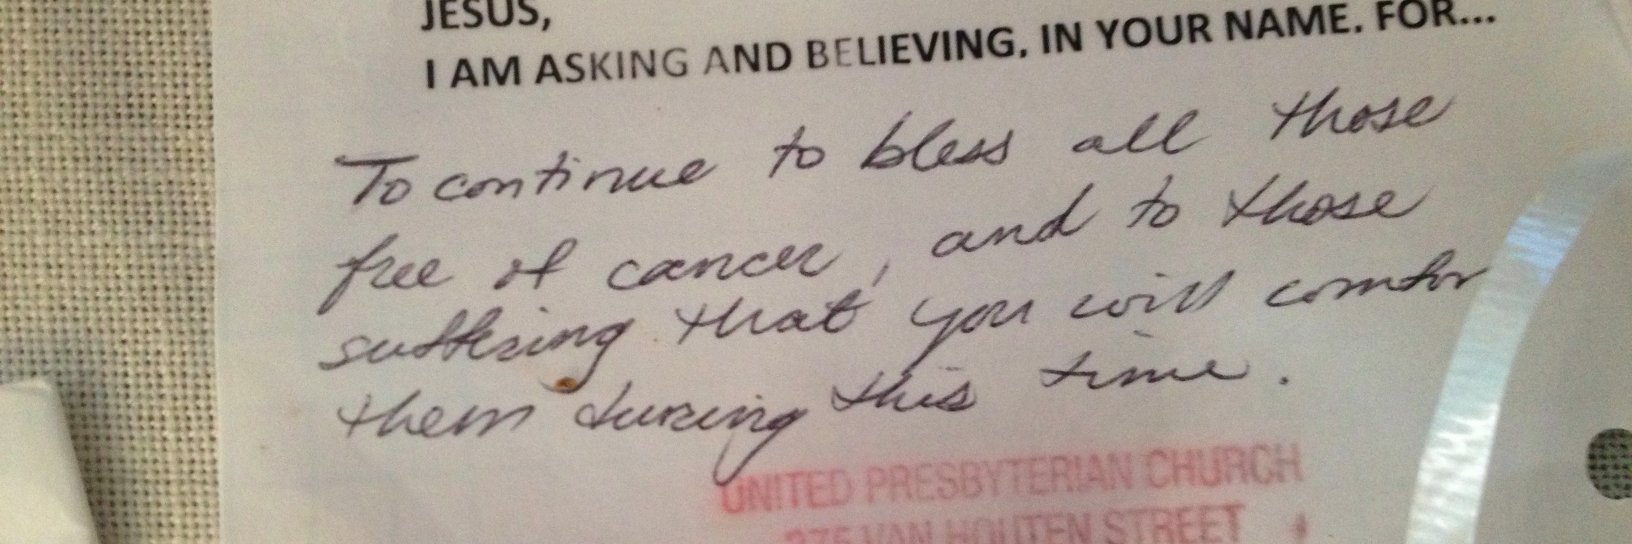 JESUS,
I AM ASKING AND BELIEVING. IN YOUR NAME. FOR...
To continue to bless all those
free of cancer, and to those
suffering that you will comfor
them during this time.
UNITED PRESBYTERIAN CHURCH
275 VAN HOUTEN STREET